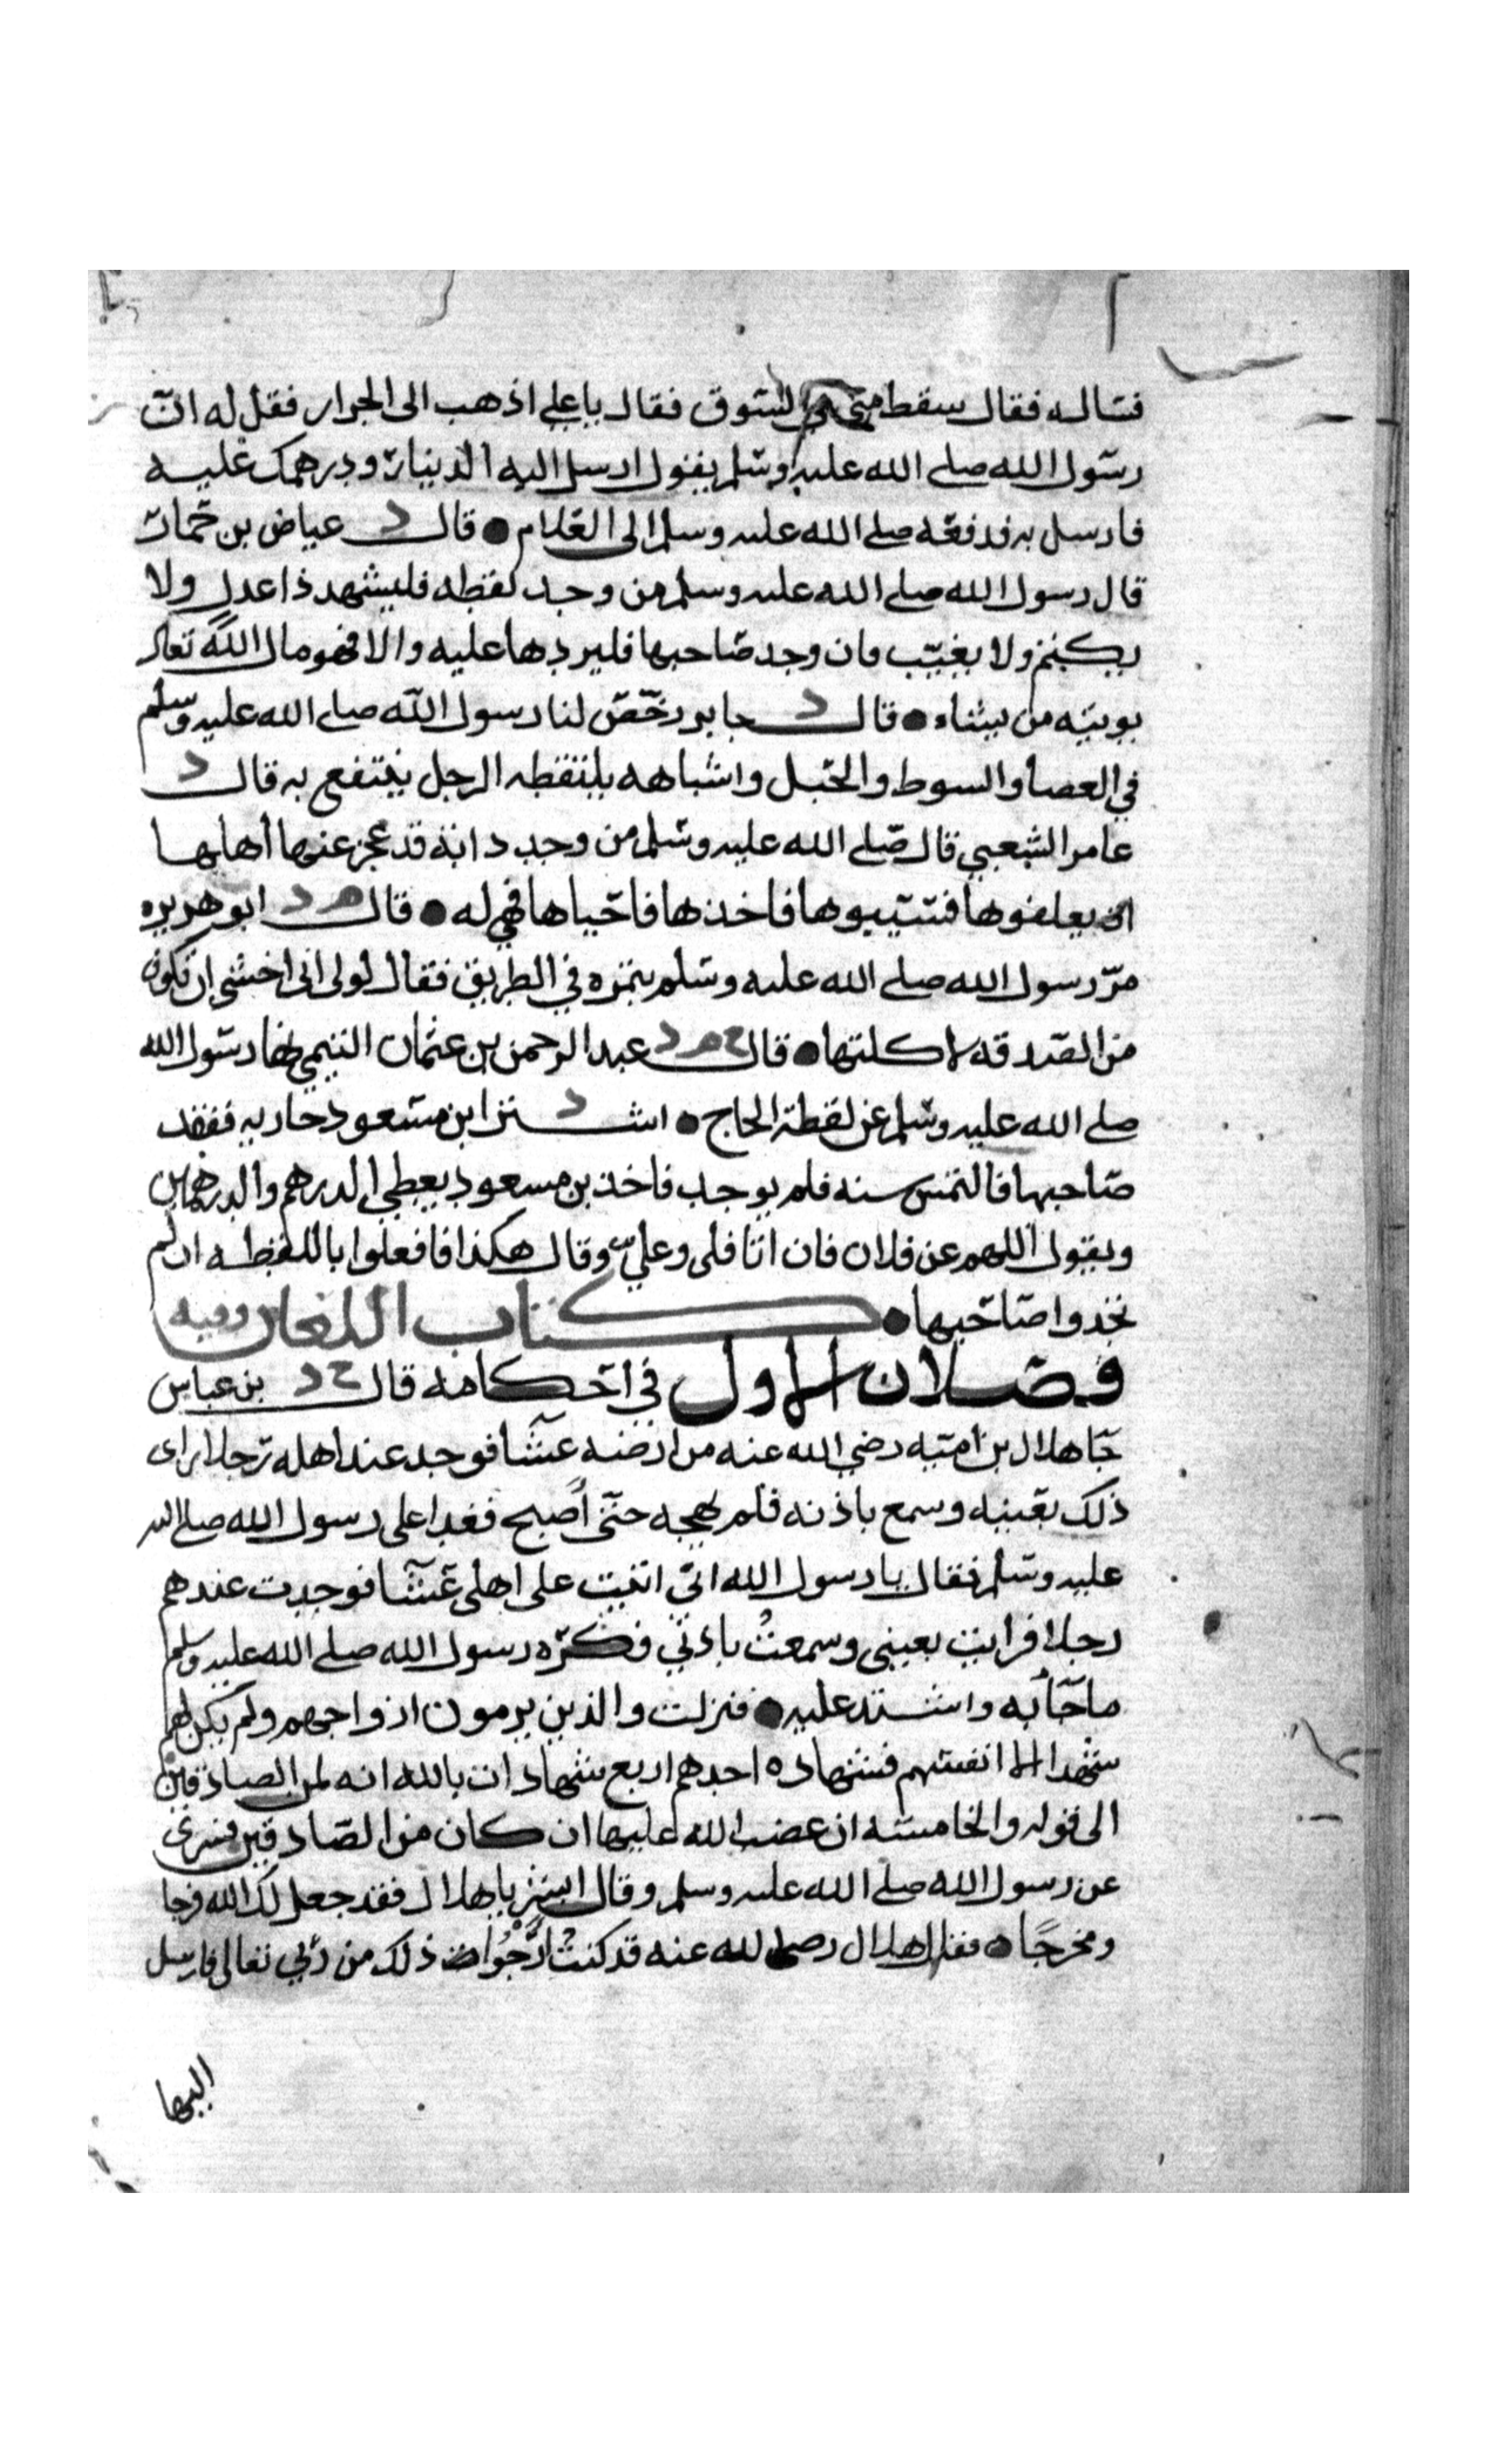 فساله فقال سقط مني في السوق فقال يا علي اذهب الى الجزار فقل له ان
رسول الله صلى الله عليه وسلم يقول ارسل اليه الدينار ودرهمك عليه
فارسل به فدفعه صلى الله عليه وسلم الى الغلام ● قال د عياض بن حمار
قال رسول الله صلى الله عليه وسلم من وجد لقطه فليشهد ذا عدل ولا
يكتم ولا يغيب فان وجد صاحبها فليردها عليه والا فهو مال الله تعالى
يوتيه من يشاء ● قال د جابر رخص لنا رسول الله صلى الله عليه وسلم
في العصا والسوط والحبل واشباهه يلتقطه الرجل ينتفع به قال د
عامر الشعبي قال صلى الله عليه وسلم من وجد دابة قد عجز عنها اهلها
ان يعلفوها فسيبوها فاخذها فاحياها فهي له ● قال م د ابو هريره
مر رسول الله صلى الله عليه وسلم بتمره في الطريق فقال لولى انى اخشى ان تكون
من الصدقه لاكلتها ● قال ح م د عبد الرحمن بن عثمان التيمي نها رسول الله
صلى الله عليه وسلم عن لقطة الحاج ● اشترى د ابن مسعود جاريه ففقد
صاحبها فالتمس سنه فلم يوجد فاخذ بن مسعود يعطي الدرهم والدرهمين
ويقول اللهم عن فلان فان اتا فلى وعلي وقال هكذا فافعلوا باللقطه ان لم
تجدوا صاحبها ● كتاب اللعان وفيه
فصلان الاول في احكامه قال ح د بن عباس
جا هلال بن اميه رضي الله عنه من ارضه عشا فوجد عند اهله رجلا راى
ذلك بعينيه وسمع باذنه فلم يهجه حتى اصبح فغدا على رسول الله صلى الله
عليه وسلم فقال يا رسول الله اني اتيت على اهلى عشا فوجدت عندهم
رجلا فرايت بعينى وسمعت باذني فكره رسول الله صلى الله عليه وسلم
ما جا به واشتد عليه ● فنزلت والذين يرمون ازواجهم ولم يكن لهم
شهدا الا انفسهم فشهاده احدهم اربع شهادات بالله انه لمن الصادقين
الى قوله والخامسه ان غضب الله عليها ان كان من الصادقين فسرى
عن رسول الله صلى الله عليه وسلم وقال ابشر يا هلال فقد جعل لك الله فرجا
ومخرجا ● فقال هلال رضي الله عنه قد كنت ارجوا ذلك من ربي تعالى فارسل
اليها